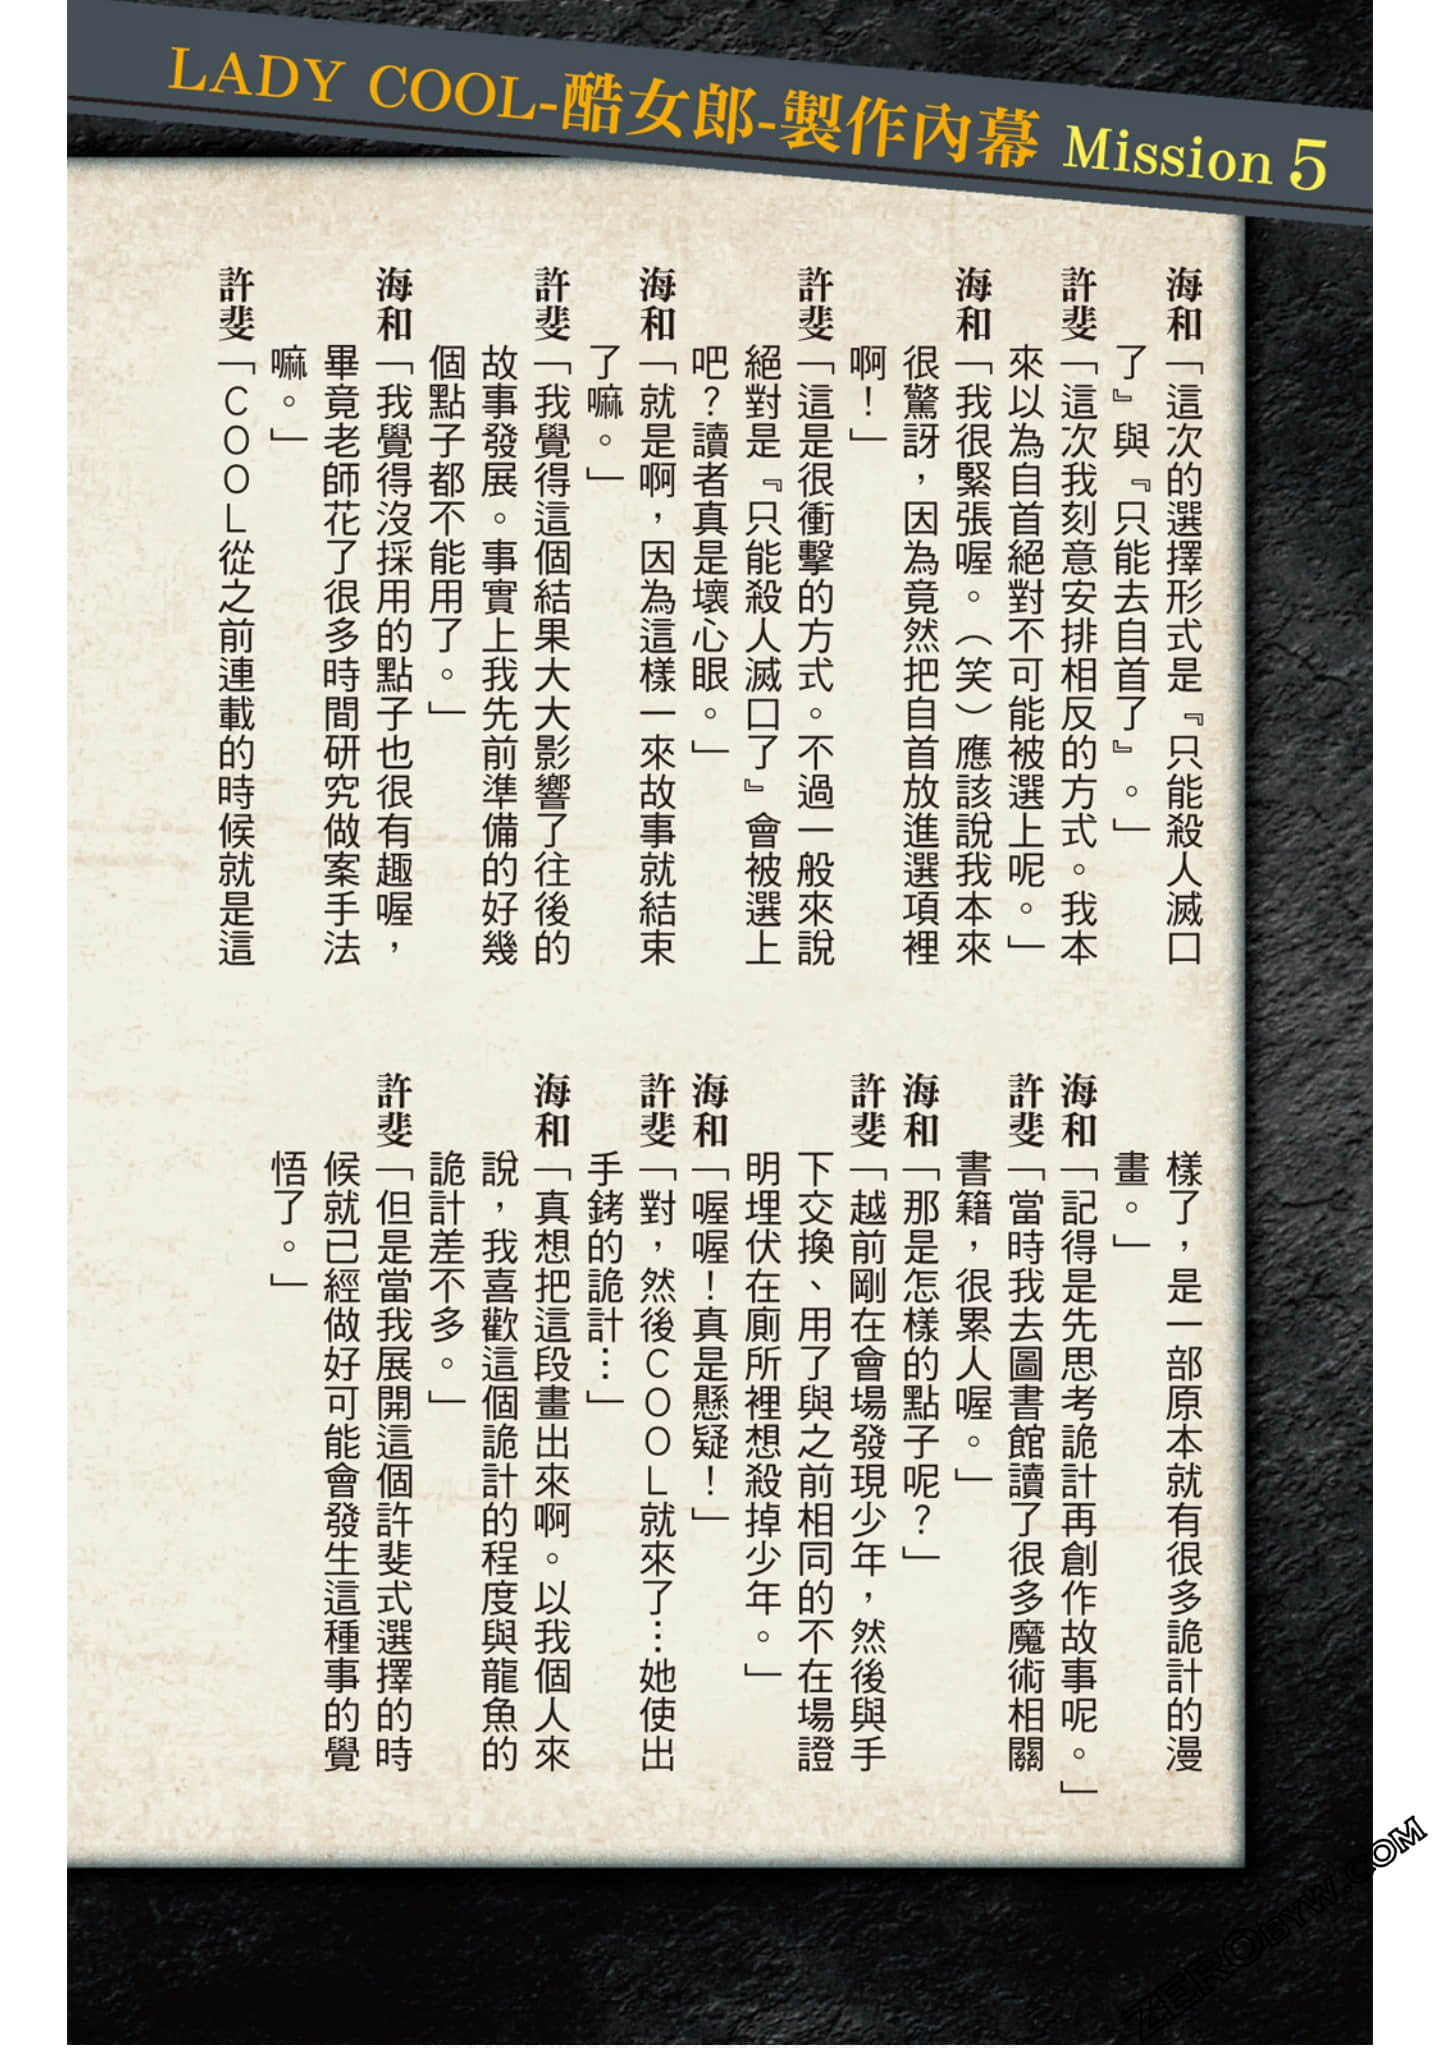 LADY COOL-酷女郎-製作內幕 Mission 5
海和「這次的選擇形式是『只能殺人滅口
了』與『只能去自首了』。」
許斐「這次我刻意安排相反的方式。我本
來以為自首絕對不可能被選上呢。」
海和「我很緊張喔。（笑）應該說我本來
很驚訝，因為竟然把自首放進選項裡
啊！」
許斐「這是很衝擊的方式。不過一般來說
絕對是『只能殺人滅口了』會被選上
吧？讀者真是壞心眼。」
海和「就是啊，因為這樣一來故事就結束
了嘛。」
許斐「我覺得這個結果大大影響了往後的
故事發展。事實上我先前準備的好幾
個點子都不能用了。」
海和「我覺得沒採用的點子也很有趣喔，
畢竟老師花了很多時間研究做案手法
嘛。」
許斐「ＣＯＯＬ從之前連載的時候就是這
樣了，是一部原本就有很多詭計的漫
畫。」
海和「記得是先思考詭計再創作故事呢。」
許斐「當時我去圖書館讀了很多魔術相關
書籍，很累人喔。」
海和「那是怎樣的點子呢？」
許斐「越前剛在會場發現少年，然後與手
下交換、用了與之前相同的不在場證
明埋伏在廁所裡想殺掉少年。」
海和「喔喔！真是懸疑！」
許斐「對，然後ＣＯＯＬ就來了…她使出
手銬的詭計…」
海和「真想把這段畫出來啊。以我個人來
說，我喜歡這個詭計的程度與龍魚的
詭計差不多。」
許斐「但是當我展開這個許斐式選擇的時
候就已經做好可能會發生這種事的覺
悟了。」
ZEROBYW.COM